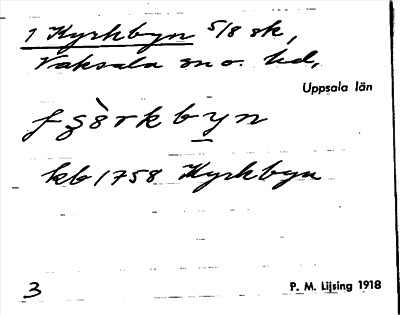 1 Kyrkbyn 5/8 sk,
Vaksala sn o. hd,
Uppsala län
kb 1758 Kyrkbyn
3
P. M. Lijsing 1918